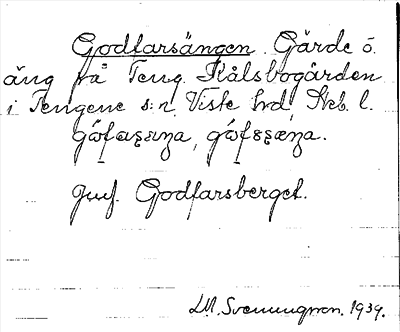 Godfarsängen. Gärde o.
äng på Teng Kålsbogården
i Tengene s:n, Viste hrd Skb. l.
Jmf. Godfarsberget.
LM. Svenungsson. 1939.